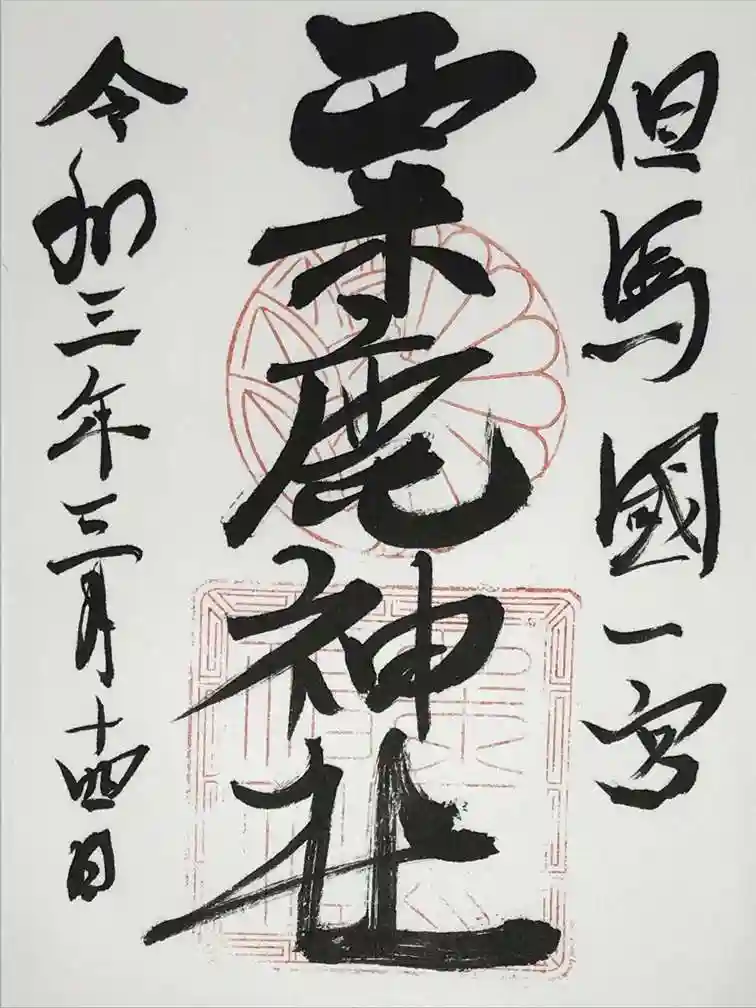 但馬國一宮
粟鹿神社
令和三年三月十四日